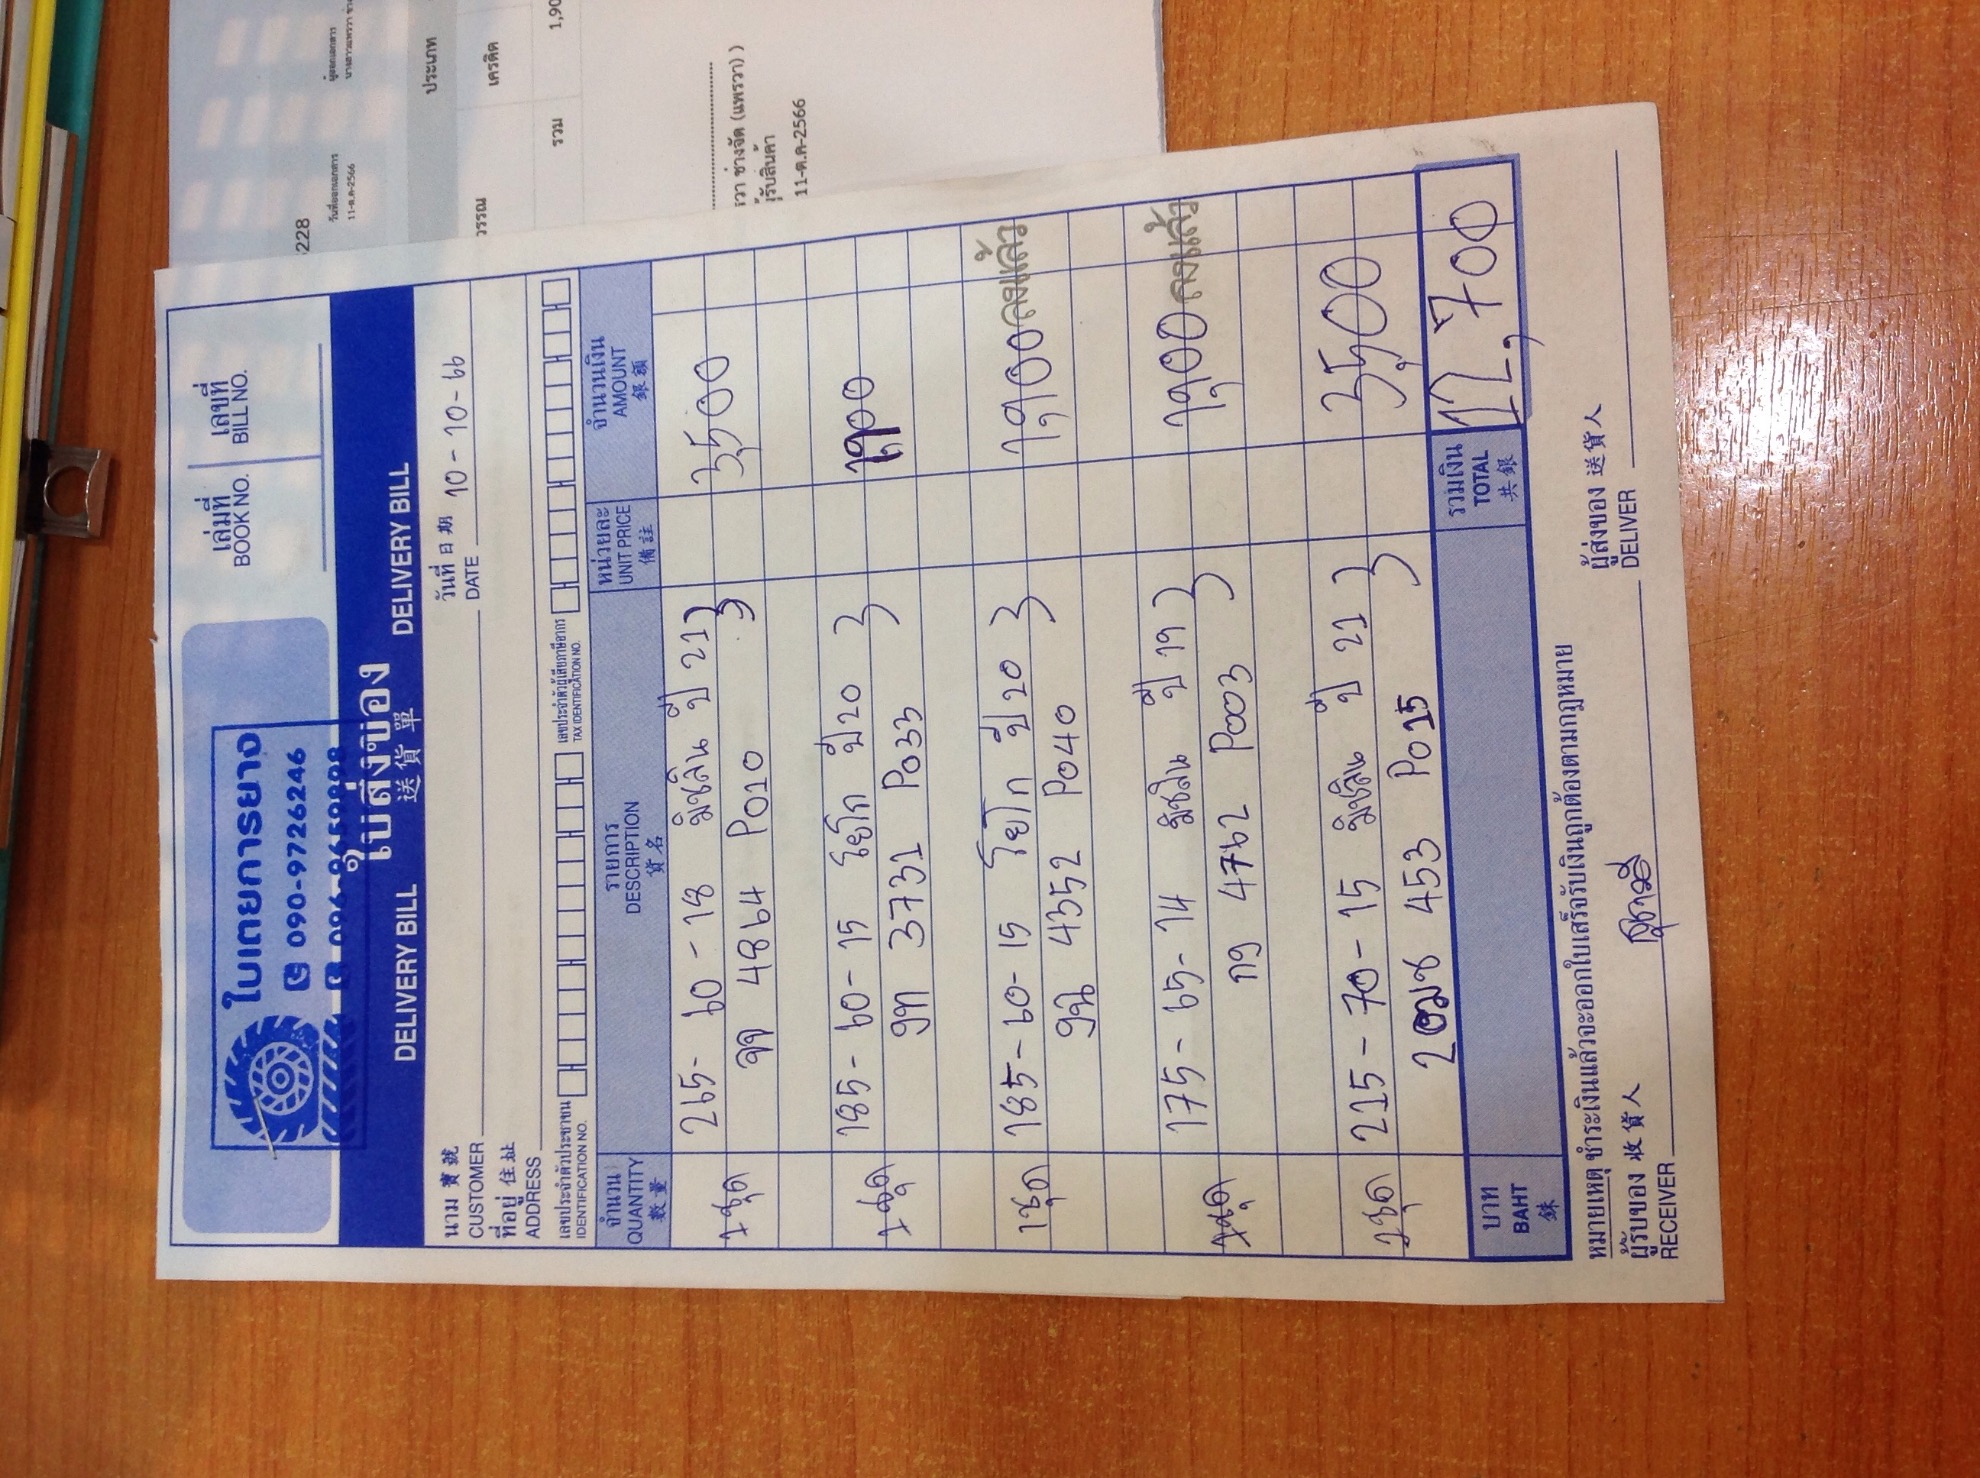 ใบเตยการยาง
090-9726246
เล่มที่
BOOK NO.
เลขที่
BILL NO.
ใบส่งของ
DELIVERY BILL 送貨單 DELIVERY BILL
นาม 寶號
CUSTOMER
วันที่ 日期
DATE 10-10-66
ที่อยู่ 住址
ADDRESS
เลขประจำตัวประชาชน
IDENTIFICATION NO.
เลขประจำตัวผู้เสียภาษีอากร
TAX IDENTIFICATION NO.
จำนวน รายการ หน่วยละ จำนวนเงิน
QUANTITY DESCRIPTION UNIT PRICE AMOUNT
數量 貨名 備註 銀額
265-60-18 มิชลิน ปี 21
1ชุด 3,500
4864 P010
185-60-15 โยโก ปี 20
1ชุด 1,900
3731 P033
185-60-15 โยโก ปี 20
1ชุด 1,900 ลงแล้ว
4352 P040
175-65-14 มิชลิน ปี 19
1ชุด 1,900 ลงแล้ว
กง 4762 P003
215-70-15 มิชลิน ปี 21
1ชุด 3,500
2ฒช 453 P015
บาท
BAHT
銖
รวมเงิน
TOTAL
共銀
12,700
หมายเหตุ ชำระเงินแล้วจะออกใบเสร็จรับเงินถูกต้องตามกฎหมาย
ผู้รับของ 收貨人
RECEIVER
ผู้ส่งของ 送貨人
DELIVER
228
วันที่ออกเอกสาร
11-ต.ค-2566
ผู้ออกเอกสาร
ประเภท
วรรณ
เครดิต
รวม
1,90
รวา ช่างจัด (แพรวา) )
รับสินค้า
11-ต.ค-2566